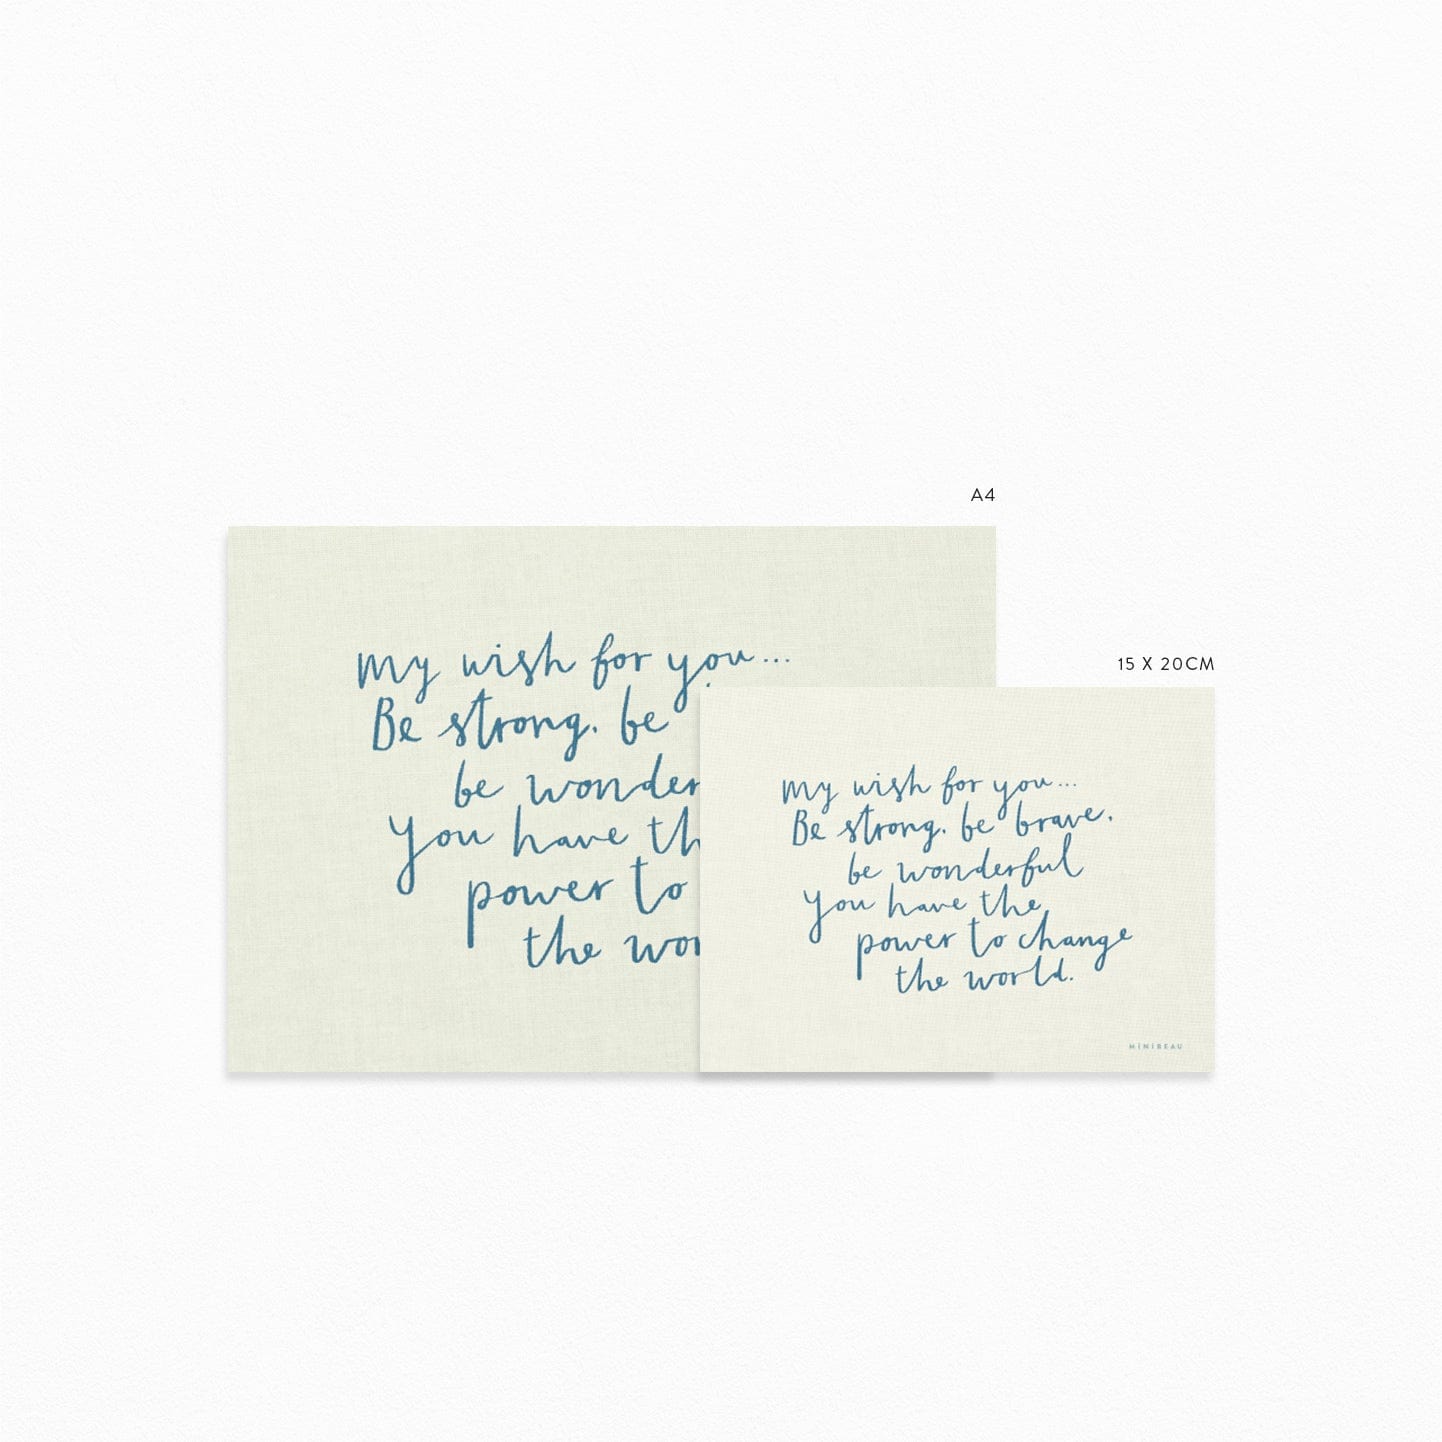 A4
My wish for you...
Be strong. be
be wonder
You have th
power to
the wor
15 X 20CM
My wish for you...
Be strong. be brave.
be wonderful
You have the
power to change
the world.
MINIBEAU